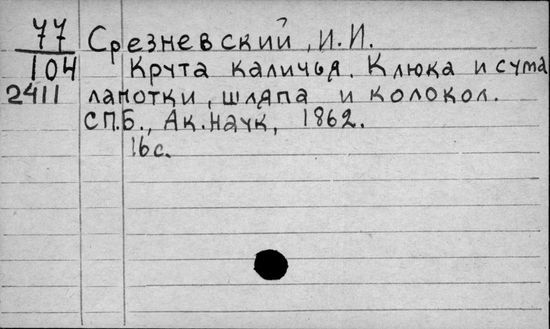 77 Срезневский, И.И.
104 Крута каличья. Клюка и сума
2411 лапотки, шляпа и колокол.
СП.Б., Ак.наук, 1862.
16с.